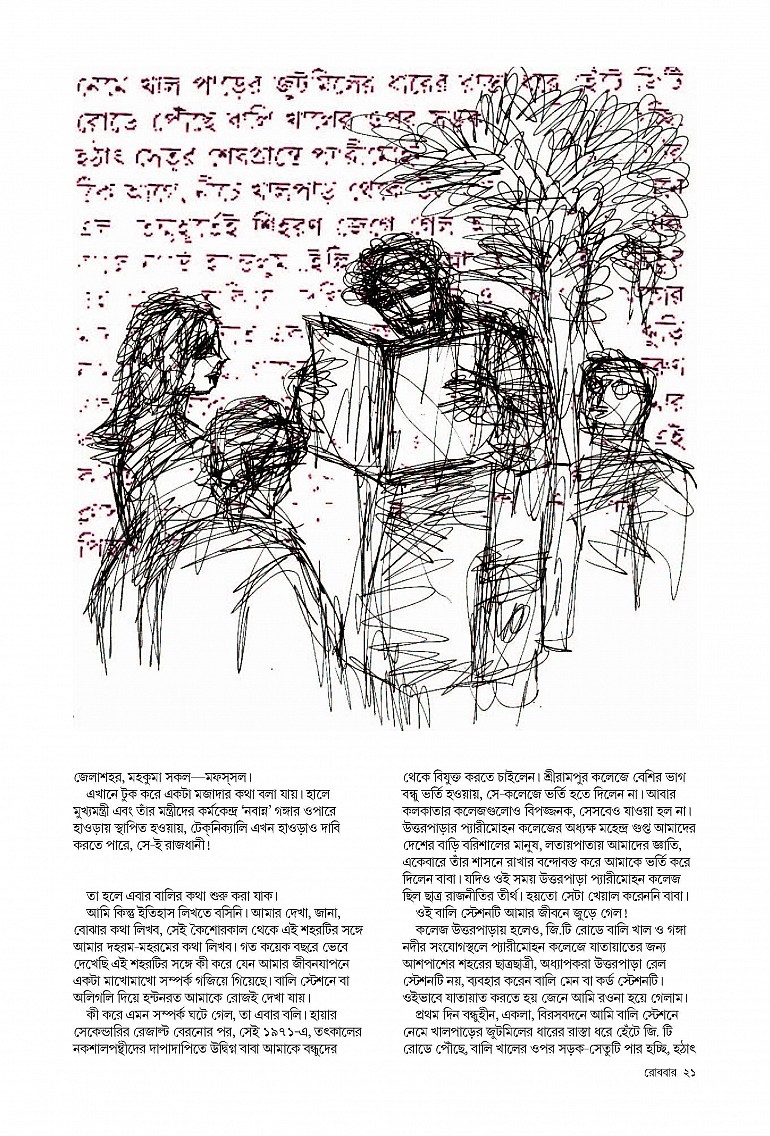 নেমে খাল পাড়ের জুটমিলের ধারের রাস্তা ধরে হেঁটে জিটি
রোডে পৌঁছে বালি খালের ওপর সড়ক
হঠাৎ সেতুর শেষপ্রান্তে
নীচে খালপাড় থেকে
শিহরণ জেগে গেল
জেলাশহর, মহকুমা সকল—মফস্সল।
এখানে টুক করে একটা মজাদার কথা বলা যায়। হালে
মুখ্যমন্ত্রী এবং তাঁর মন্ত্রীদের কর্মকেন্দ্র ‘নবান্ন’ গঙ্গার ওপারে
হাওড়ায় স্থাপিত হওয়ায়, টেক্‌নিক্যালি এখন হাওড়াও দাবি
করতে পারে, সে-ই রাজধানী!
তা হলে এবার বালির কথা শুরু করা যাক।
আমি কিন্তু ইতিহাস লিখতে বসিনি। আমার দেখা, জানা,
বোঝার কথা লিখব, সেই কৈশোরকাল থেকে এই শহরটির সঙ্গে
আমার দহরম-মহরমের কথা লিখব। গত কয়েক বছরে ভেবে
দেখেছি এই শহরটির সঙ্গে কী করে যেন আমার জীবনযাপনে
একটা মাখোমাখো সম্পর্ক গজিয়ে গিয়েছে। বালি স্টেশনে বা
অলিগলি দিয়ে হন্টনরত আমাকে রোজই দেখা যায়।
কী করে এমন সম্পর্ক ঘটে গেল, তা এবার বলি। হায়ার
সেকেন্ডারির রেজাল্ট বেরনোর পর, সেই ১৯৭১-এ, তৎকালের
নকশালপন্থীদের দাপাদাপিতে উদ্বিগ্ন বাবা আমাকে বন্ধুদের
থেকে বিযুক্ত করতে চাইলেন। শ্রীরামপুর কলেজে বেশির ভাগ
বন্ধু ভর্তি হওয়ায়, সে-কলেজে ভর্তি হতে দিলেন না। আবার
কলকাতার কলেজগুলোও বিপজ্জনক, সেসবেও যাওয়া হল না।
উত্তরপাড়ার প্যারীমোহন কলেজের অধ্যক্ষ মহেন্দ্র গুপ্ত আমাদের
দেশের বাড়ি বরিশালের মানুষ, লতায়পাতায় আমাদের জ্ঞাতি,
একেবারে তাঁর শাসনে রাখার বন্দোবস্ত করে আমাকে ভর্তি করে
দিলেন বাবা। যদিও ওই সময় উত্তরপাড়া প্যারীমোহন কলেজ
ছিল ছাত্র রাজনীতির তীর্থ। হয়তো সেটা খেয়াল করেননি বাবা।
ওই বালি স্টেশনটি আমার জীবনে জুড়ে গেল!
কলেজ উত্তরপাড়ায় হলেও, জি.টি রোডে বালি খাল ও গঙ্গা
নদীর সংযোগস্থলে প্যারীমোহন কলেজে যাতায়াতের জন্য
আশপাশের শহরের ছাত্রছাত্রী, অধ্যাপকরা উত্তরপাড়া রেল
স্টেশনটি নয়, ব্যবহার করেন বালি মেন বা কর্ড স্টেশনটি।
ওইভাবে যাতায়াত করতে হয় জেনে আমি রওনা হয়ে গেলাম।
প্রথম দিন বন্ধুহীন, একলা, বিরসবদনে আমি বালি স্টেশনে
নেমে খালপাড়ের জুটমিলের ধারের রাস্তা ধরে হেঁটে জি. টি
রোডে পৌঁছে, বালি খালের ওপর সড়ক-সেতুটি পার হচ্ছি, হঠাৎ
রোববার ২১